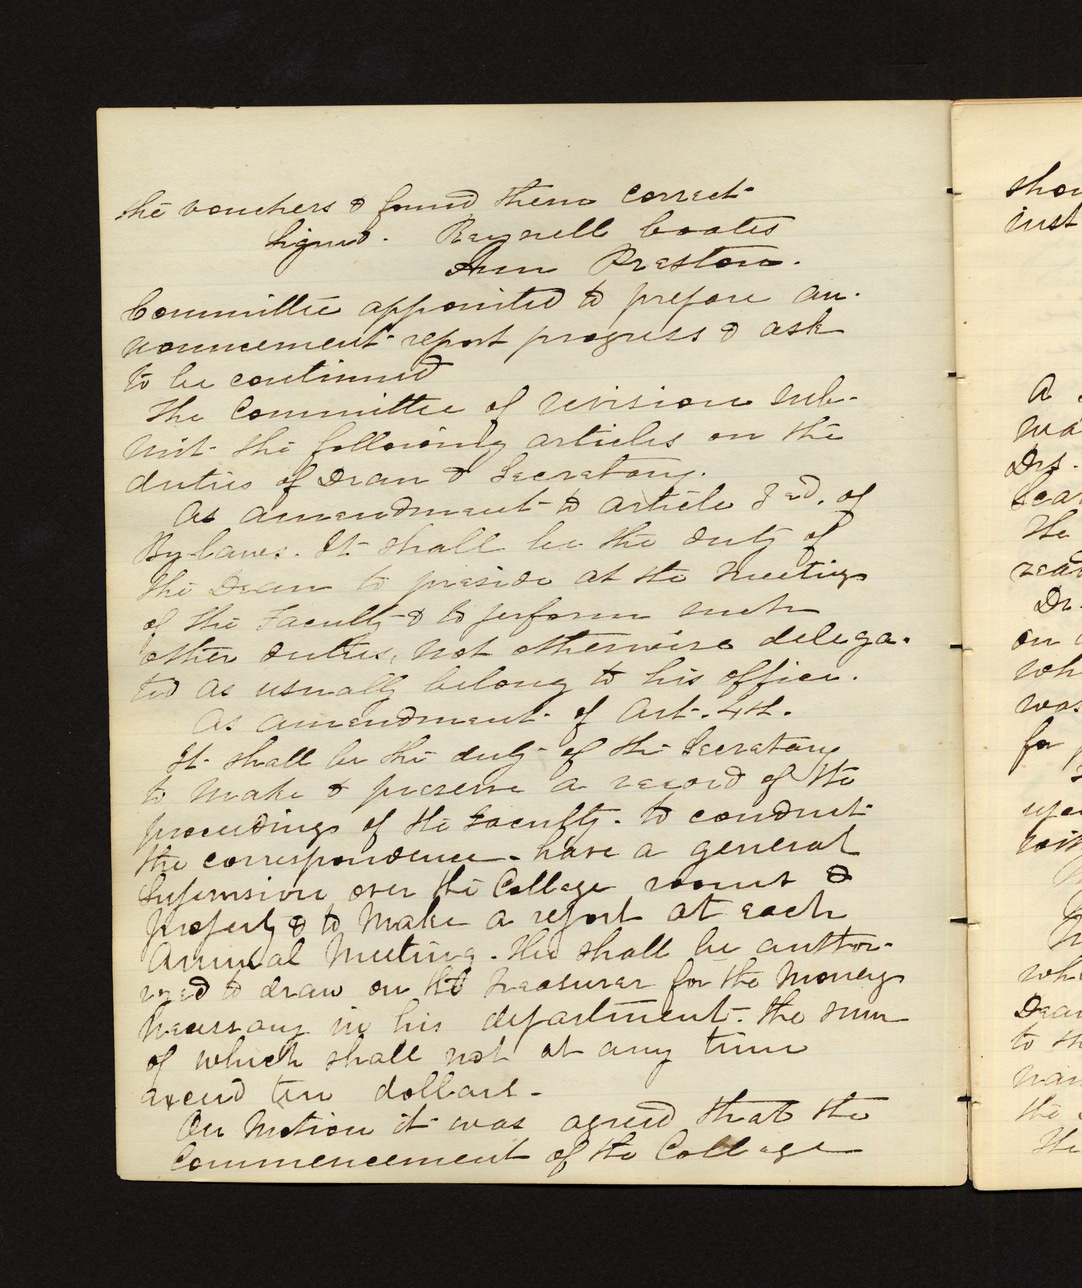 the vouchers & found them correct
Signed. Reynell Coates
Ann Preston.
Committee appointed to prepare an-
nouncement report progress & ask
to be continued
The Committee of revision sub-
mit the following articles on the
duties of Dean & Secretary.
As amendment to article 3rd. of
By-laws. It shall be the duty of
the Dean to preside at the meetings
of the Faculty & to perform such
other duties, not otherwise delega-
ted as usually belong to his office.
As amendment of Art. 4th.
It shall be the duty of the Secretary
to make & preserve a record of the
proceedings of the Faculty. to conduct
the correspondence - have a general
supervision over the College rooms &
property & to make a report at each
Annual Meeting. He shall be author-
ized to draw on the Treasurer for the money
necessary in his department. The sum
of which shall not at any time
exceed ten dollars.
On Motion it was agreed that the
Commencement of the College
shou
inst
A
ma
Drs.
The
Dr.
on
wh
was
for
wh
Dean
to th
nam
the
The